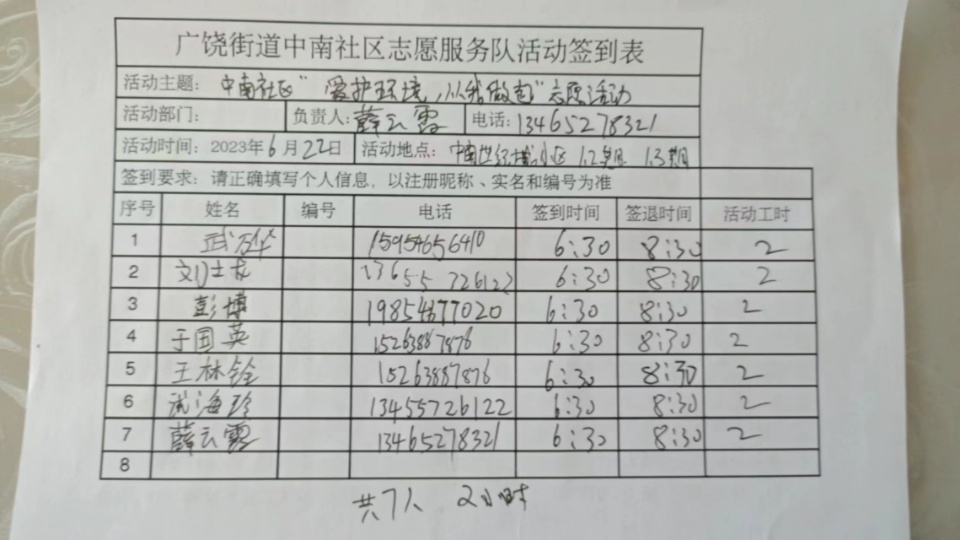 广饶街道中南社区志愿服务队活动签到表
活动主题：中南社区“爱护环境,从我做起”志愿活动
活动部门： 负责人：薛云霞 电话：13465278321
活动时间：2023年6月22日 活动地点：中南世纪城小区 1.2期 1.3期
签到要求：请正确填写个人信息，以注册昵称、实名和编号为准
序号 姓名 编号 电话 签到时间 签退时间 活动工时
1 武万华 15954656410 6:30 8:30 2
2 6:30 8:30 2
3 彭博 19854677020 6:30 8:30 2
4 于国英 15263887876 6:30 8:30 2
5 王林铨 15263887876 6:30 8:30 2
6 武海珍 13455726122 6:30 8:30 2
7 薛云霞 13465278321 6:30 8:30 2
8
共7人 2小时